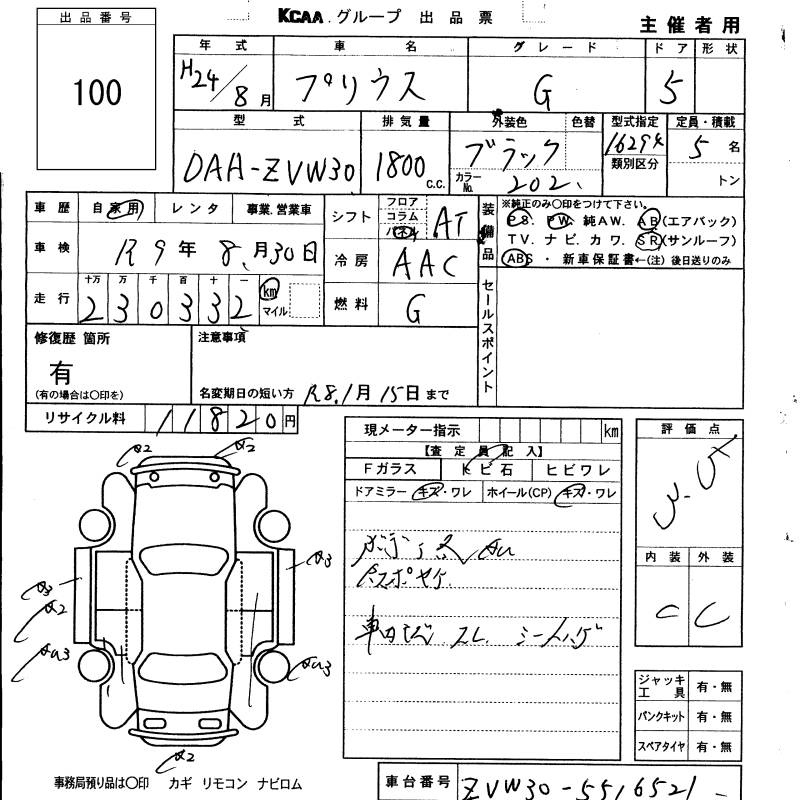 出品番号
100
KCAA グループ 出品票
主催者用
年式 車名 グレード ドア 形状
H24/8月 プリウス G 5
型式 排気量 外装色 色替 型式指定 定員・積載
DAA-ZVW30 1800 C.C. ブラック 類別区分 5名
カラーNo. 202 トン
車歴 自家用 レンタ 事業.営業車
シフト フロア コラム パネル AT
装備品 ※純正のみ○印をつけて下さい。
PS. PW. 純AW. AB(エアバック)
TV. ナビ. カワ. SR(サンルーフ)
ABS ・ 新車保証書←(注) 後日送りのみ
車検 R9年8月30日
冷房 AAC
走行 十万 万 千 百 十 一
230332 km マイル
燃料 G
セールスポイント
修復歴 箇所
有
(有の場合は○印を)
注意事項
名変期日の短い方 R8.1月15日まで
リサイクル料 11820円
現メーター指示 km
【査定員記入】
Fガラス トビ石 ヒビワレ
ドアミラー キズ・ワレ ホイール(CP) キズ・ワレ
評価点
内装 外装
C C
A2 A2
A3 A3
A2
AU3 AU3
A2
ジャッキ工具 有・無
パンクキット 有・無
スペアタイヤ 有・無
事務局預り品は○印 カギ リモコン ナビロム
車台番号 ZVW30-5516521